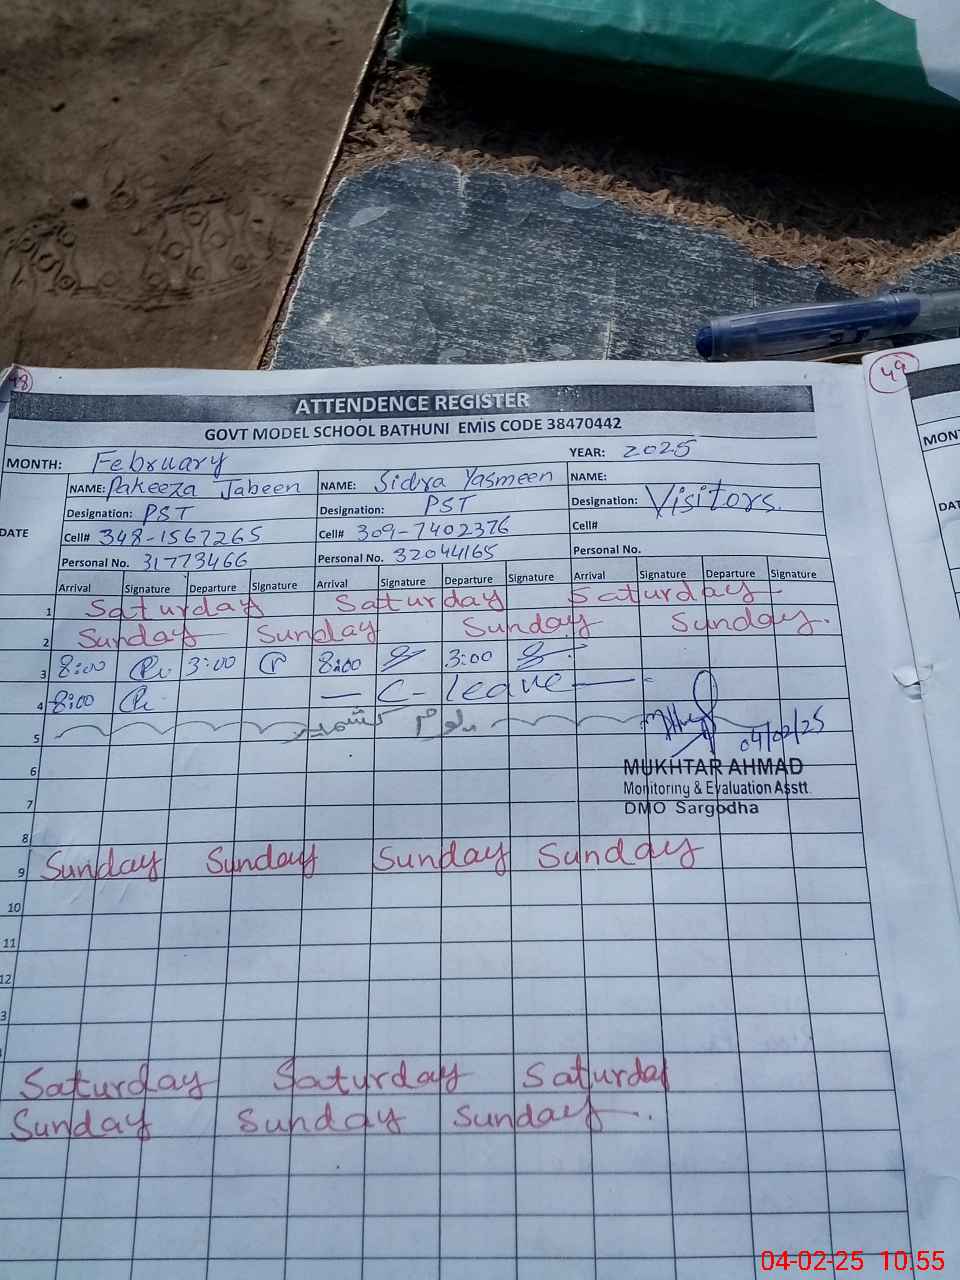 48
49
ATTENDENCE REGISTER
GOVT MODEL SCHOOL BATHUNI EMIS CODE 38470442
MONTH: February YEAR: 2025
NAME: Pakeeza Jabeen NAME: Sidra Yasmeen NAME:
Designation: PST Designation: PST Designation: Visitors.
Cell# 348-1567265 Cell# 309-7402376 Cell#
Personal No. 31773466 Personal No. 32044165 Personal No.
DATE Arrival Signature Departure Signature Arrival Signature Departure Signature Arrival Signature Departure Signature
1 Saturday Saturday Saturday
2 Sunday Sunday Sunday Sunday.
3 8:00 3:00 8:00 3:00
4 8:00 C-leave
5 یوم کشمیر
04/02/25
MUKHTAR AHMAD
Monitoring & Evaluation Asstt
DMO Sargodha
6
7
8
9 Sunday Sunday Sunday Sunday
10
11
12
3
Saturday Saturday Saturda
Sunday Sunday Sunday
MON
DAT
04-02-25 10.55